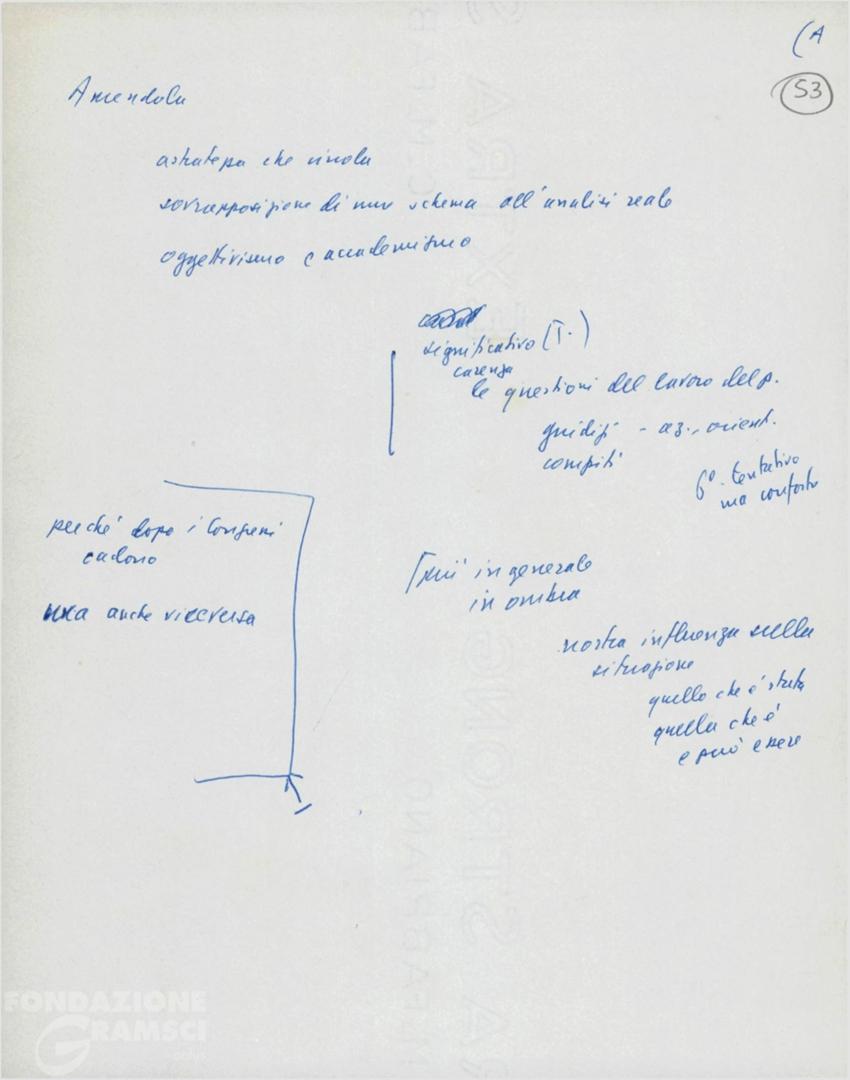 (A
53
Amendola
che
sovrapposizione di uno schema all'analisi reale
oggettivismo e accademismo
significativo (T.)
carenza
le questioni del lavoro del p.
giudizi - az., orient.
compiti
6° tentativo
ma
perché dopo i Congressi
cadono
ma anche viceversa
più in generale
in ombra
nostra influenza sulla
situazione
quello che è stata
quella che è
e può essere
FONDAZIONE
GRAMSCI
onlus